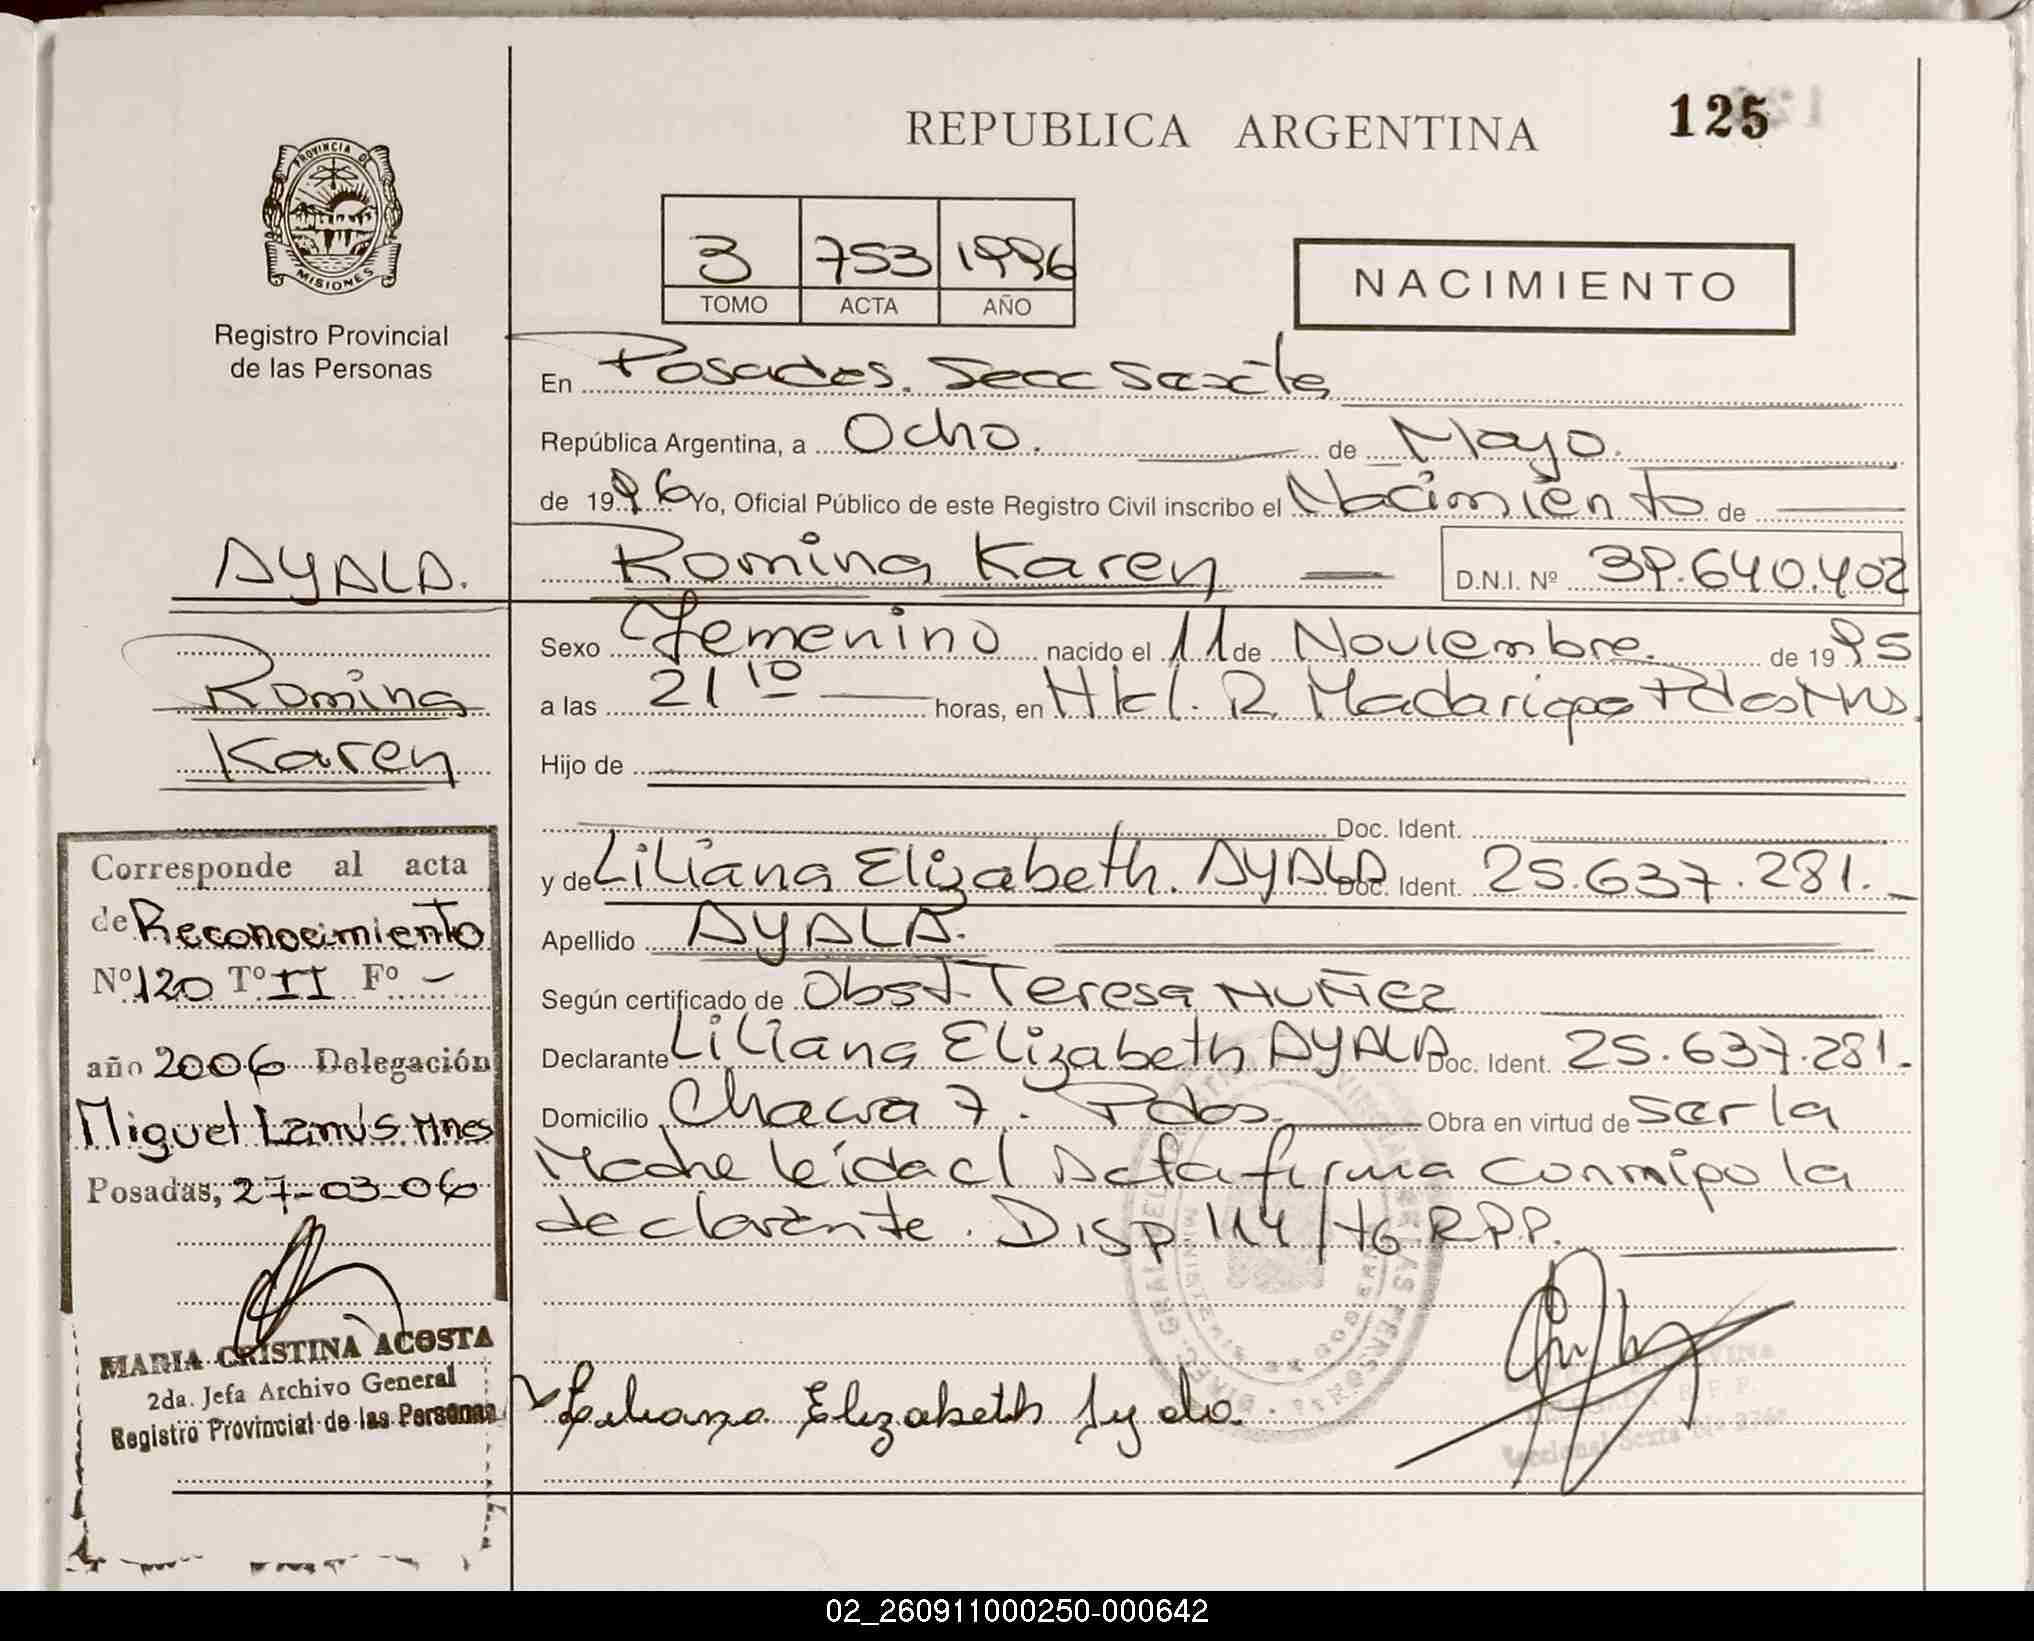 REPUBLICA ARGENTINA
125
PROVINCIA DE
MISIONES
Registro Provincial
de las Personas
3 753 1996
TOMO ACTA AÑO
NACIMIENTO
En Posadas. Secc Sexta
República Argentina, a Ocho. de Mayo.
de 1996 Yo, Oficial Público de este Registro Civil inscribo el Nacimiento de
AYALA.
Romina Karen D.N.I. Nº 39.640.402
Romina
Karen
Sexo Femenino nacido el 11 de Noviembre. de 1995
a las 21 10 horas, en R Madariaga Pdas Mns.
Hijo de
Doc. Ident.
y de Liliana Elizabeth. AYALA Doc. Ident. 25.637.281.
Apellido AYALA.
Según certificado de Obst. Teresa NUÑEZ
Declarante Liliana Elizabeth AYALA Doc. Ident. 25.637.281.
Domicilio Chacra 7. Pdas. Obra en virtud de ser la
Madre leída el Acta firma conmigo la
declarante. Disp. 114/76 R.P.P.
Corresponde al acta
de Reconocimiento
Nº 120 Tº II Fº -
año 2006 Delegación
Miguel Lanús Mnes
Posadas, 27-03-06
MARIA CRISTINA ACOSTA
2da. Jefa Archivo General
Registro Provincial de las Personas
Liliana Elizabeth Ayala
02_260911000250-000642